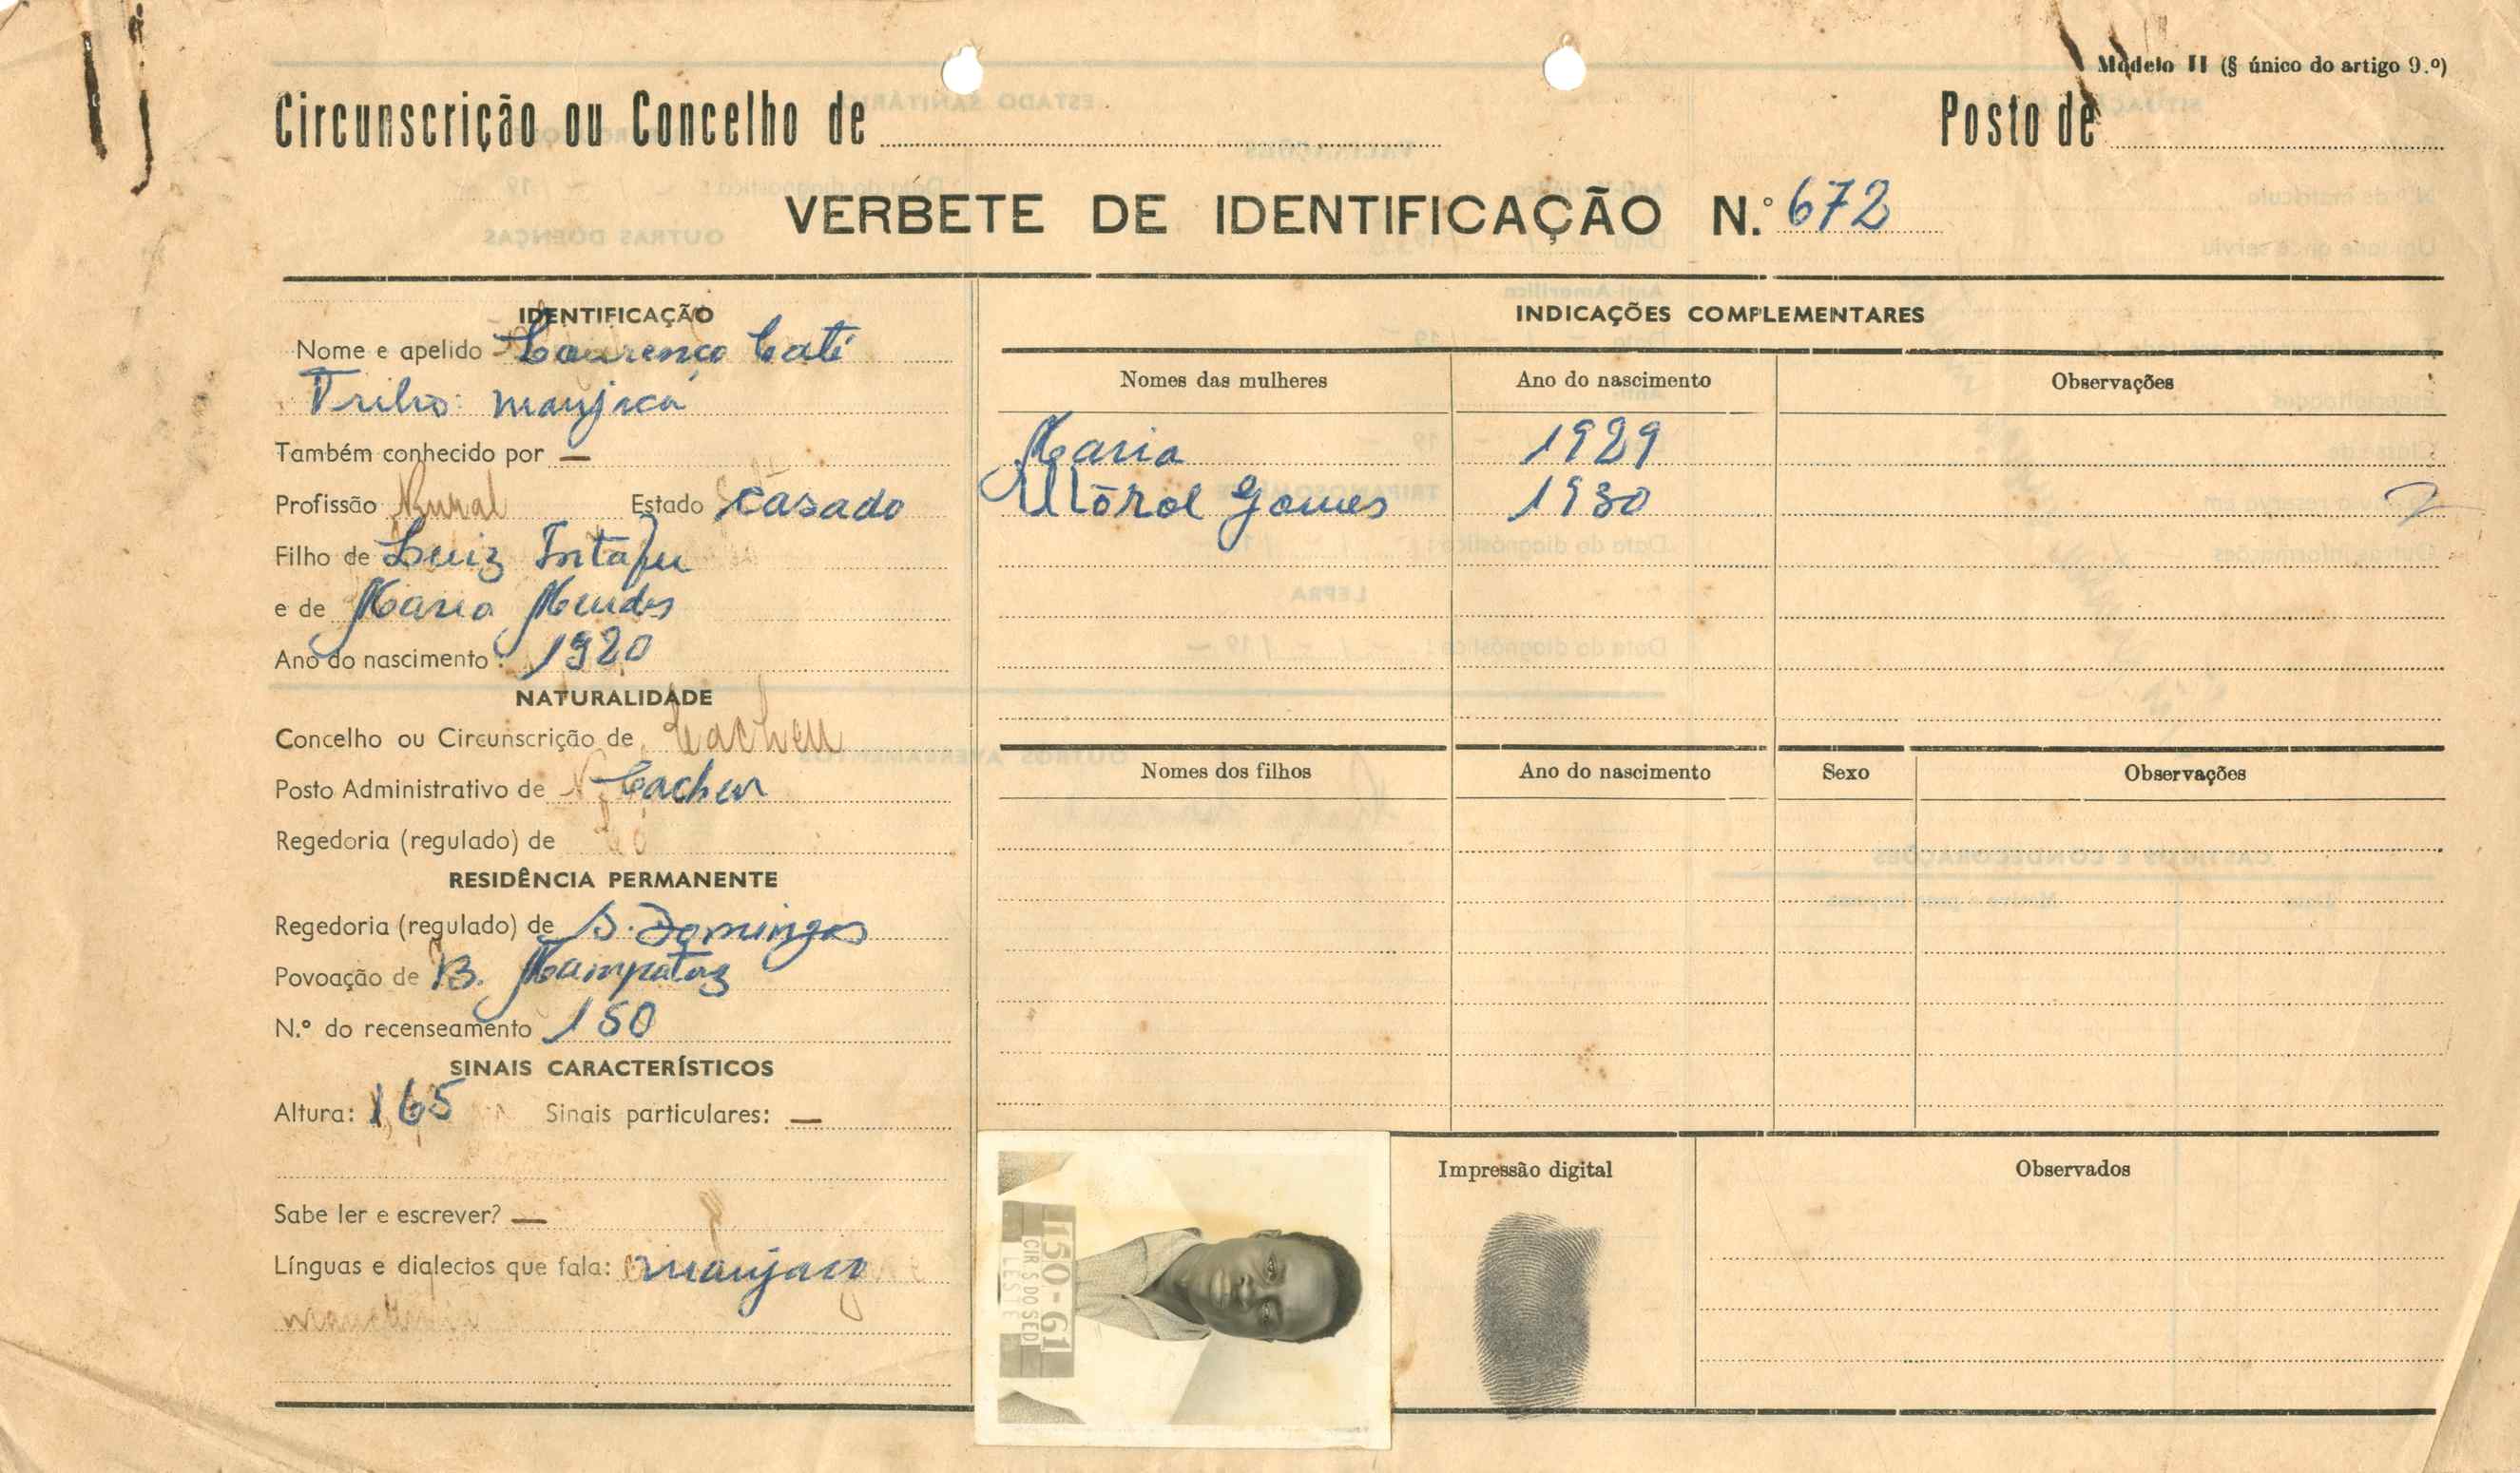 Modelo II (§ único do artigo 9.º)
Circunscrição ou Concelho de
Posto de
VERBETE DE IDENTIFICAÇÃO N.º 672
IDENTIFICAÇÃO
Nome e apelido Lourenço Cati
Tribo: manjaca
Também conhecido por —
Profissão Rural Estado casado
Filho de Luiz Intafu
e de Maria Mendes
Ano do nascimento: 1920
NATURALIDADE
Concelho ou Circunscrição de Cacheu
Posto Administrativo de Cacheu
Regedoria (regulado) de
RESIDÊNCIA PERMANENTE
Regedoria (regulado) de S. Domingos
Povoação de B.
N.º do recenseamento 150
SINAIS CARACTERÍSTICOS
Altura: 1,65 Sinais particulares: —
Sabe ler e escrever? —
Línguas e dialectos que fala: manjaco
INDICAÇÕES COMPLEMENTARES
Nomes das mulheres Ano do nascimento Observações
Maria 1929
Gomes 1930
Nomes dos filhos Ano do nascimento Sexo Observações
150-61
CIR S DO SED
LESTE
Impressão digital
Observados